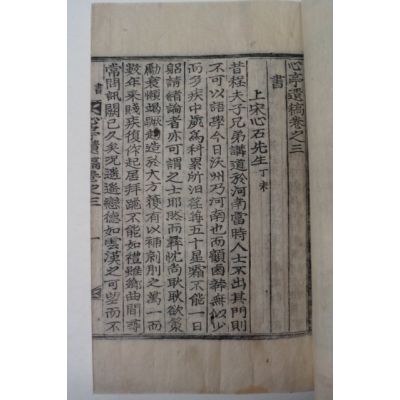 心亭遺稿卷之三
書
上宋心石先生 丁未
昔程夫子兄弟講道於河南當時人士不出其門則
不可以語學今日沃州乃河南也而顧崙辭無似少
而多疾中歲爲科累所汨荏苒五十星霜不能一日
躬請緖論者亦可謂之士耶然而彛忱尙耿耿欲策
勵衰懶蝎蹶趍造於大方獲有以補劓刖之萬一而
數年來賤疾復作起居拜跪不能如禮雖鄕曲間尋
常問訊闕已久矣況遺遙戀德如雲漢之可望而不
書 心亭遺稿卷之三 一